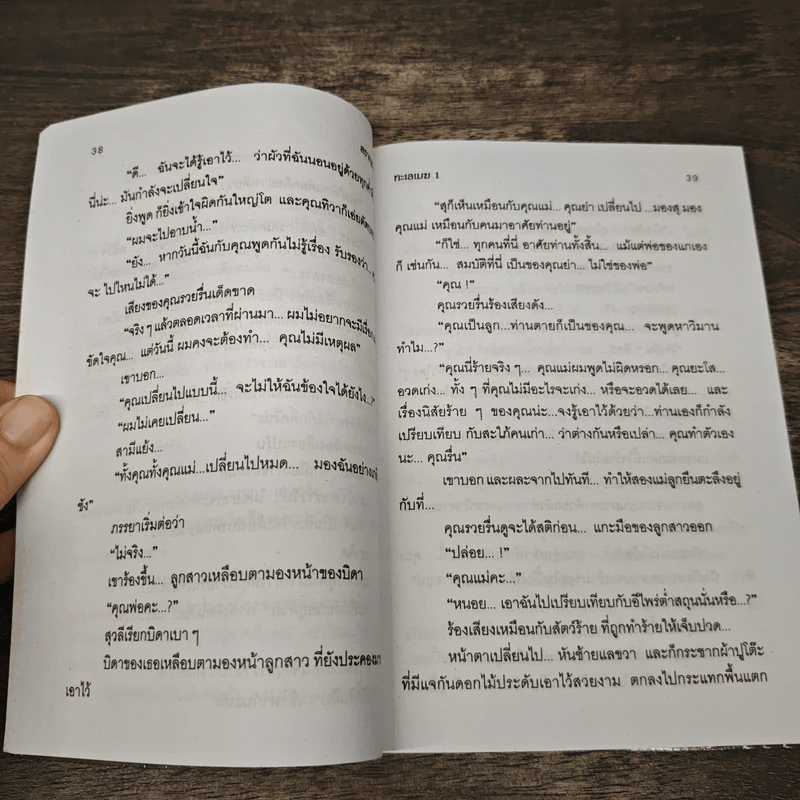 38
"ดี... ฉันจะได้รู้เอาไว้... ว่าผัวที่ฉันนอนอยู่ด้วยทุกค่ำ
นี่น่ะ... มันกำลังจะเปลี่ยนใจ"
ยิ่งพูด ก็ยิ่งเข้าใจผิดกันใหญ่โต และคุณทิวาก็เอ่ยตัด
"ผมจะไปอาบน้ำ..."
"ยัง... หากวันนี้ฉันกับคุณพูดกันไม่รู้เรื่อง รับรองว่า...
จะ ไปไหนไม่ได้..."
เสียงของคุณรวยรื่นเด็ดขาด
"จริง ๆ แล้วตลอดเวลาที่ผ่านมา... ผมไม่อยากจะมีเรื่อง
ขัดใจคุณ... แต่วันนี้ ผมคงจะต้องทำ... คุณไม่มีเหตุผล"
เขาบอก...
"คุณเปลี่ยนไปแบบนี้... จะไม่ให้ฉันข้องใจได้ยังไง...?"
"ผมไม่เคยเปลี่ยน..."
สามีแย้ง...
"ทั้งคุณทั้งคุณแม่...เปลี่ยนไปหมด... มองฉันอย่าง
ชัง"
ภรรยาเริ่มต่อว่า
"ไม่จริง..."
เขาร้องขึ้น... ลูกสาวเหลือบตามองหน้าของบิดา
"คุณพ่อคะ...?"
สุวลีเรียกบิดาเบา ๆ
บิดาของเธอเหลือบตามองหน้าลูกสาว ที่ยังประคอง
เอาไว้
ทะเลเมฆ 1
39
"สุก็เห็นเหมือนกับคุณแม่... คุณย่า เปลี่ยนไป ...มองสุ มอง
คุณแม่ เหมือนกับคนมาอาศัยท่านอยู่"
"ก็ใช่... ทุกคนที่นี่ อาศัยท่านทั้งสิ้น... แม้แต่พ่อของแกเอง
ก็ เช่นกัน... สมบัติที่นี่ เป็นของคุณย่า... ไม่ใช่ของพ่อ"
"คุณ !"
คุณรวยรื่นร้องเสียงดัง...
"คุณเป็นลูก...ท่านตายก็เป็นของคุณ... จะพูดหาวิมาน
ทำไม...?"
"คุณนี่ร้ายจริง ๆ... คุณแม่ผมพูดไม่ผิดหรอก... คุณยะโส...
อวดเก่ง... ทั้ง ๆ ที่คุณไม่มีอะไรจะเก่ง... หรือจะอวดได้เลย... และ
เรื่องนิสัยร้าย ๆ ของคุณน่ะ...จงรู้เอาไว้ด้วยว่า...ท่านเองก็กำลัง
เปรียบเทียบ กับสะใภ้คนเก่า... ว่าต่างกันหรือเปล่า... คุณทำตัวเอง
นะ... คุณรื่น"
เขาบอก และผละจากไปทันที... ทำให้สองแม่ลูกยืนตะลึงอยู่
กับที่...
คุณรวยรื่นดูจะได้สติก่อน... แกะมือของลูกสาวออก
"ปล่อย... !"
"คุณแม่คะ..."
"หนอย... เอาฉันไปเปรียบเทียบกับอีไพร่ต่ำสถุนนั่นหรือ...?"
ร้องเสียงเหมือนกับสัตว์ร้าย ที่ถูกทำร้ายให้เจ็บปวด...
หน้าตาเปลี่ยนไป... หันซ้ายแลขวา และก็กระชากผ้าปูโต๊ะ
ที่มีแจกันดอกไม้ประดับเอาไว้สวยงาม ตกลงไปกระแทกพื้นแตก